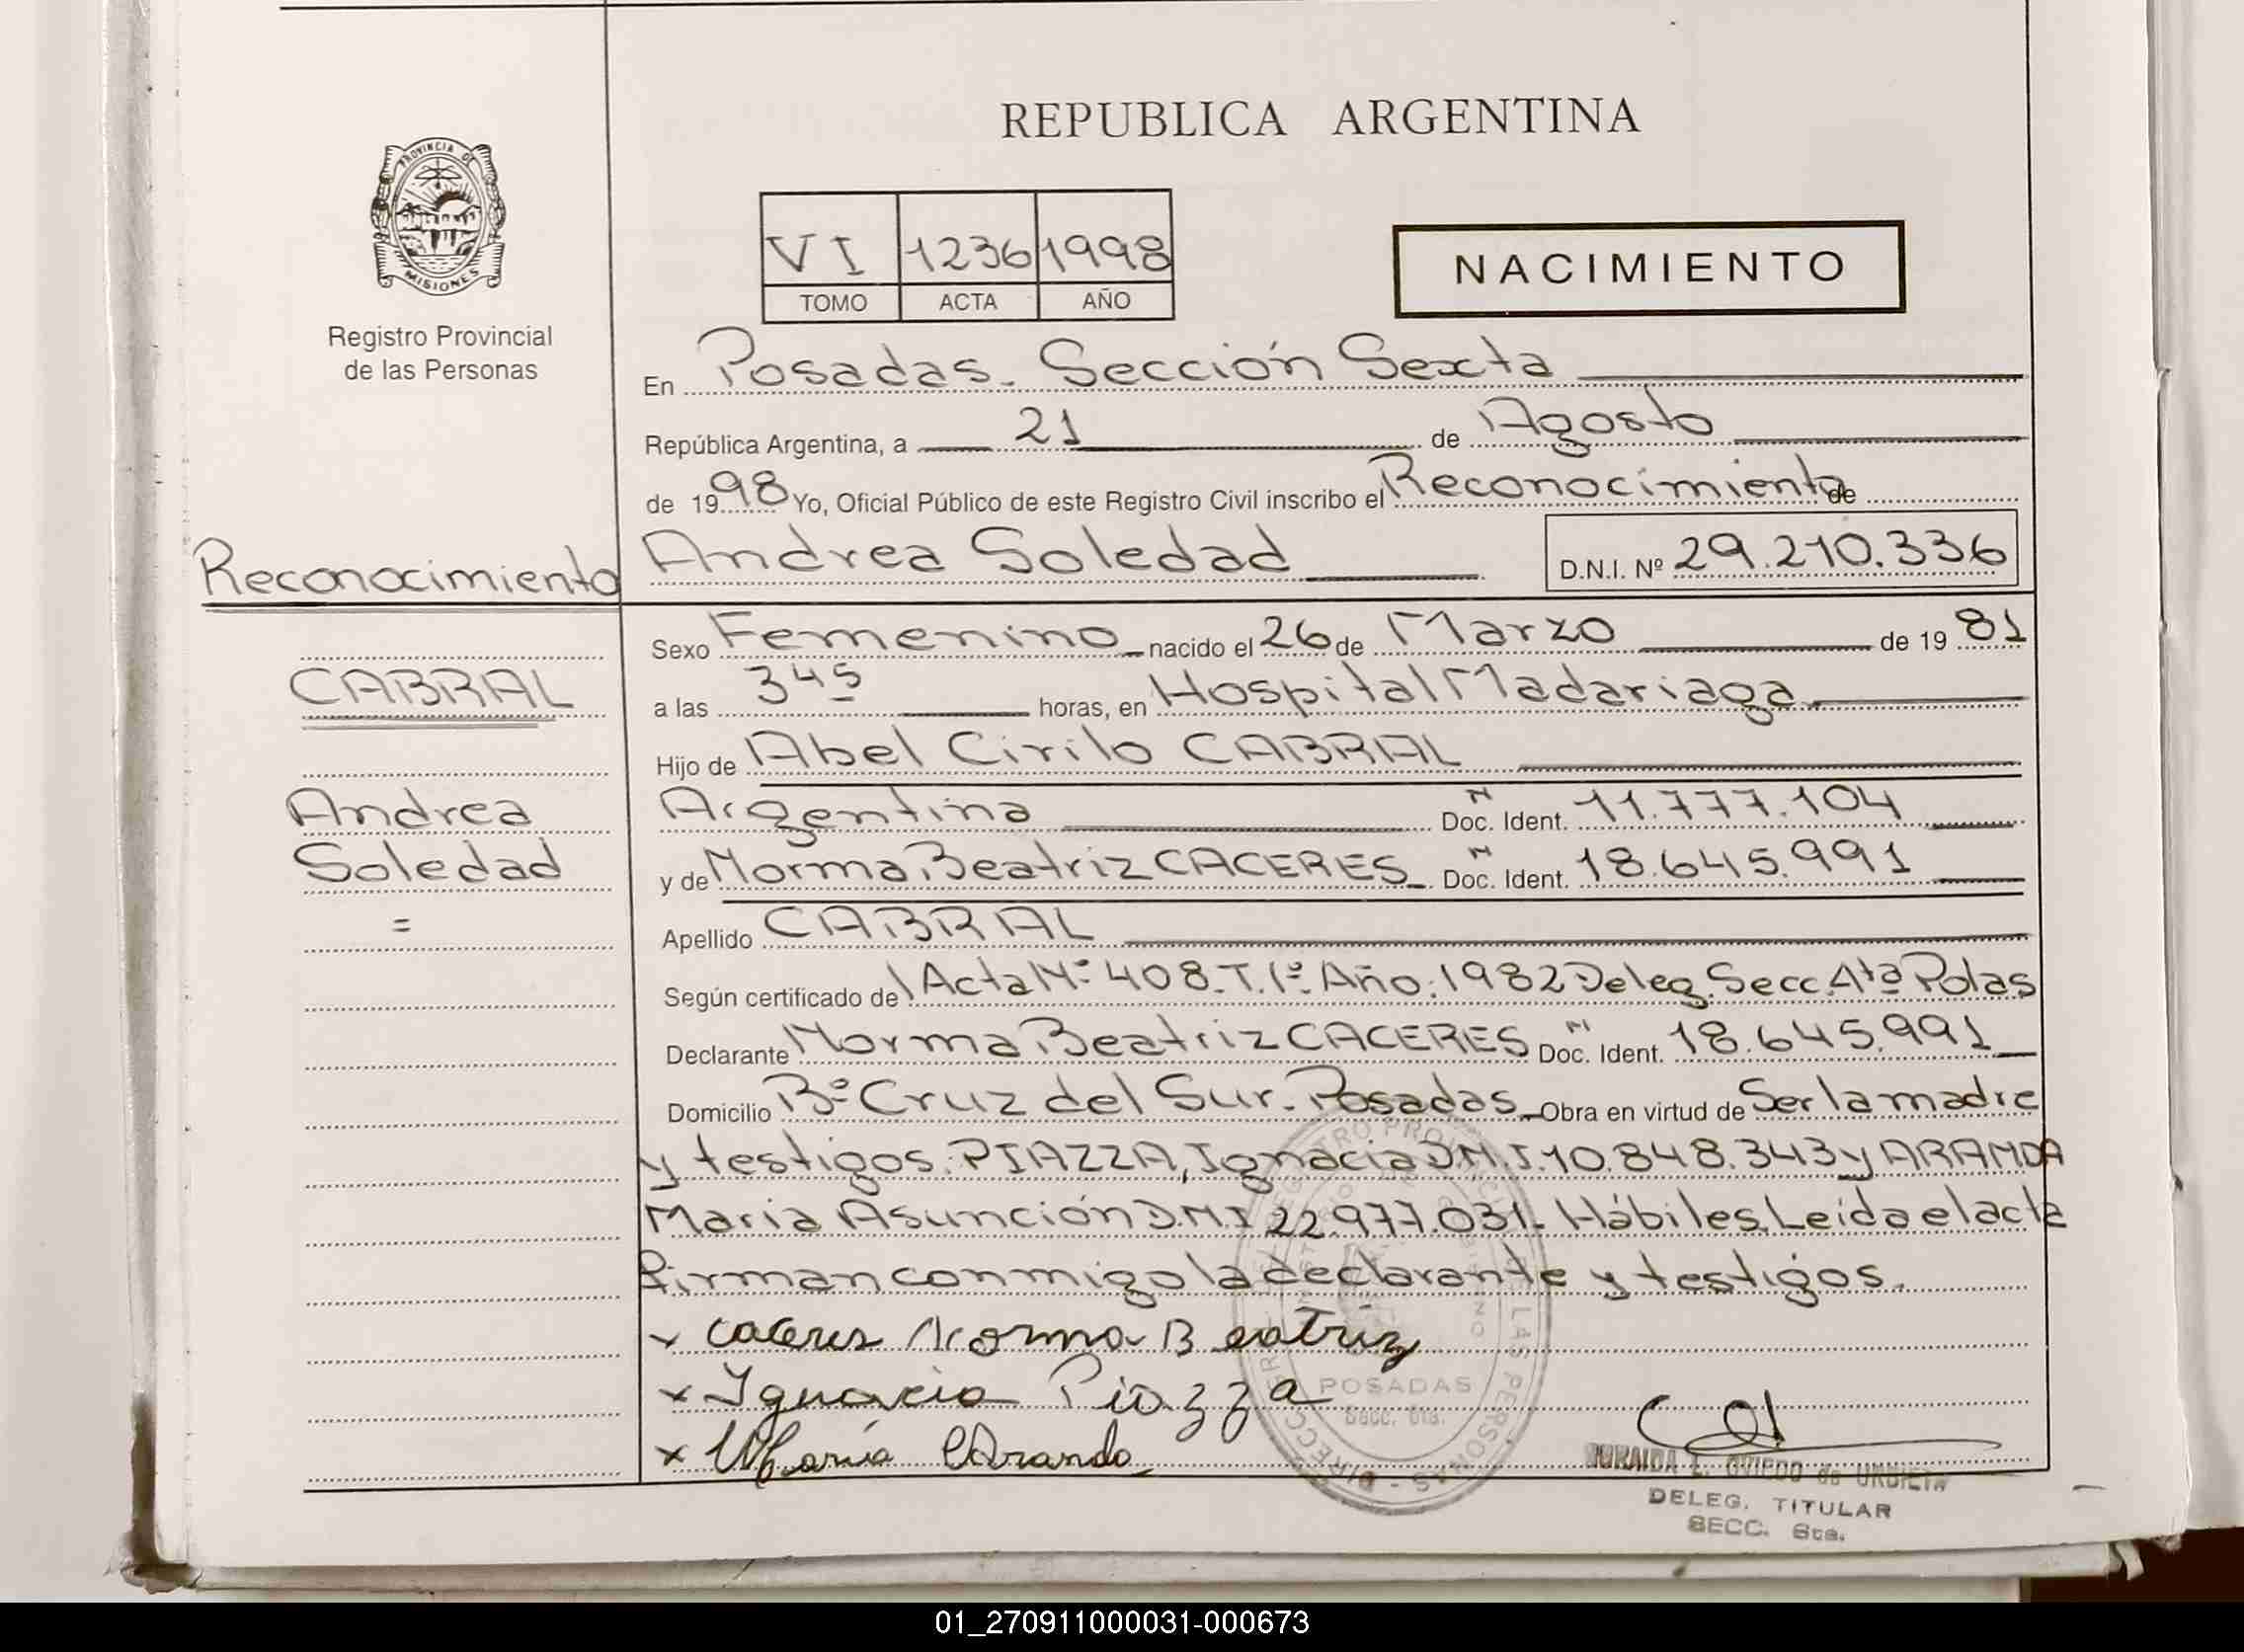 REPUBLICA ARGENTINA
PROVINCIA DE
MISIONES
Registro Provincial
de las Personas
VI 1236 1998
TOMO ACTA AÑO
NACIMIENTO
En Posadas. Sección Sexta
República Argentina, a 21 de Agosto
de 1998 Yo, Oficial Público de este Registro Civil inscribo el Reconocimiento de
Andrea Soledad D.N.I. Nº 29.210.336
Reconocimiento
CABRAL
Andrea
Soledad
=
Sexo Femenino nacido el 26 de Marzo de 19 81
a las 3 45 horas, en Hospital Madariaga
Hijo de Abel Cirilo CABRAL
Argentina Doc. Ident. 11.777.104
y de Norma Beatriz CACERES Doc. Ident. 18.645.991
Apellido CABRAL
Según certificado de Acta Nº 408. T. 1º Año: 1982 Deleg. Secc. 4ta Pdas
Declarante Norma Beatriz CACERES Doc. Ident. 18.645.991
Domicilio Bº Cruz del Sur. Posadas Obra en virtud de Ser la madre
y testigos: PIAZZA, Ignacia D.N.I. 10.848.343 y ARANDA
Maria Asunción D.N.I 22.977.031. Hábiles. Leída el acta
firman conmigo la declarante y testigos.
x Caceres Norma Beatriz
x Ignacia Piazza
x María Aranda
POSADAS
Secc. 6ta.
ZURAIDA E. OVIEDO de URBIETA
DELEG. TITULAR
SECC. 6ta.
01_270911000031-000673